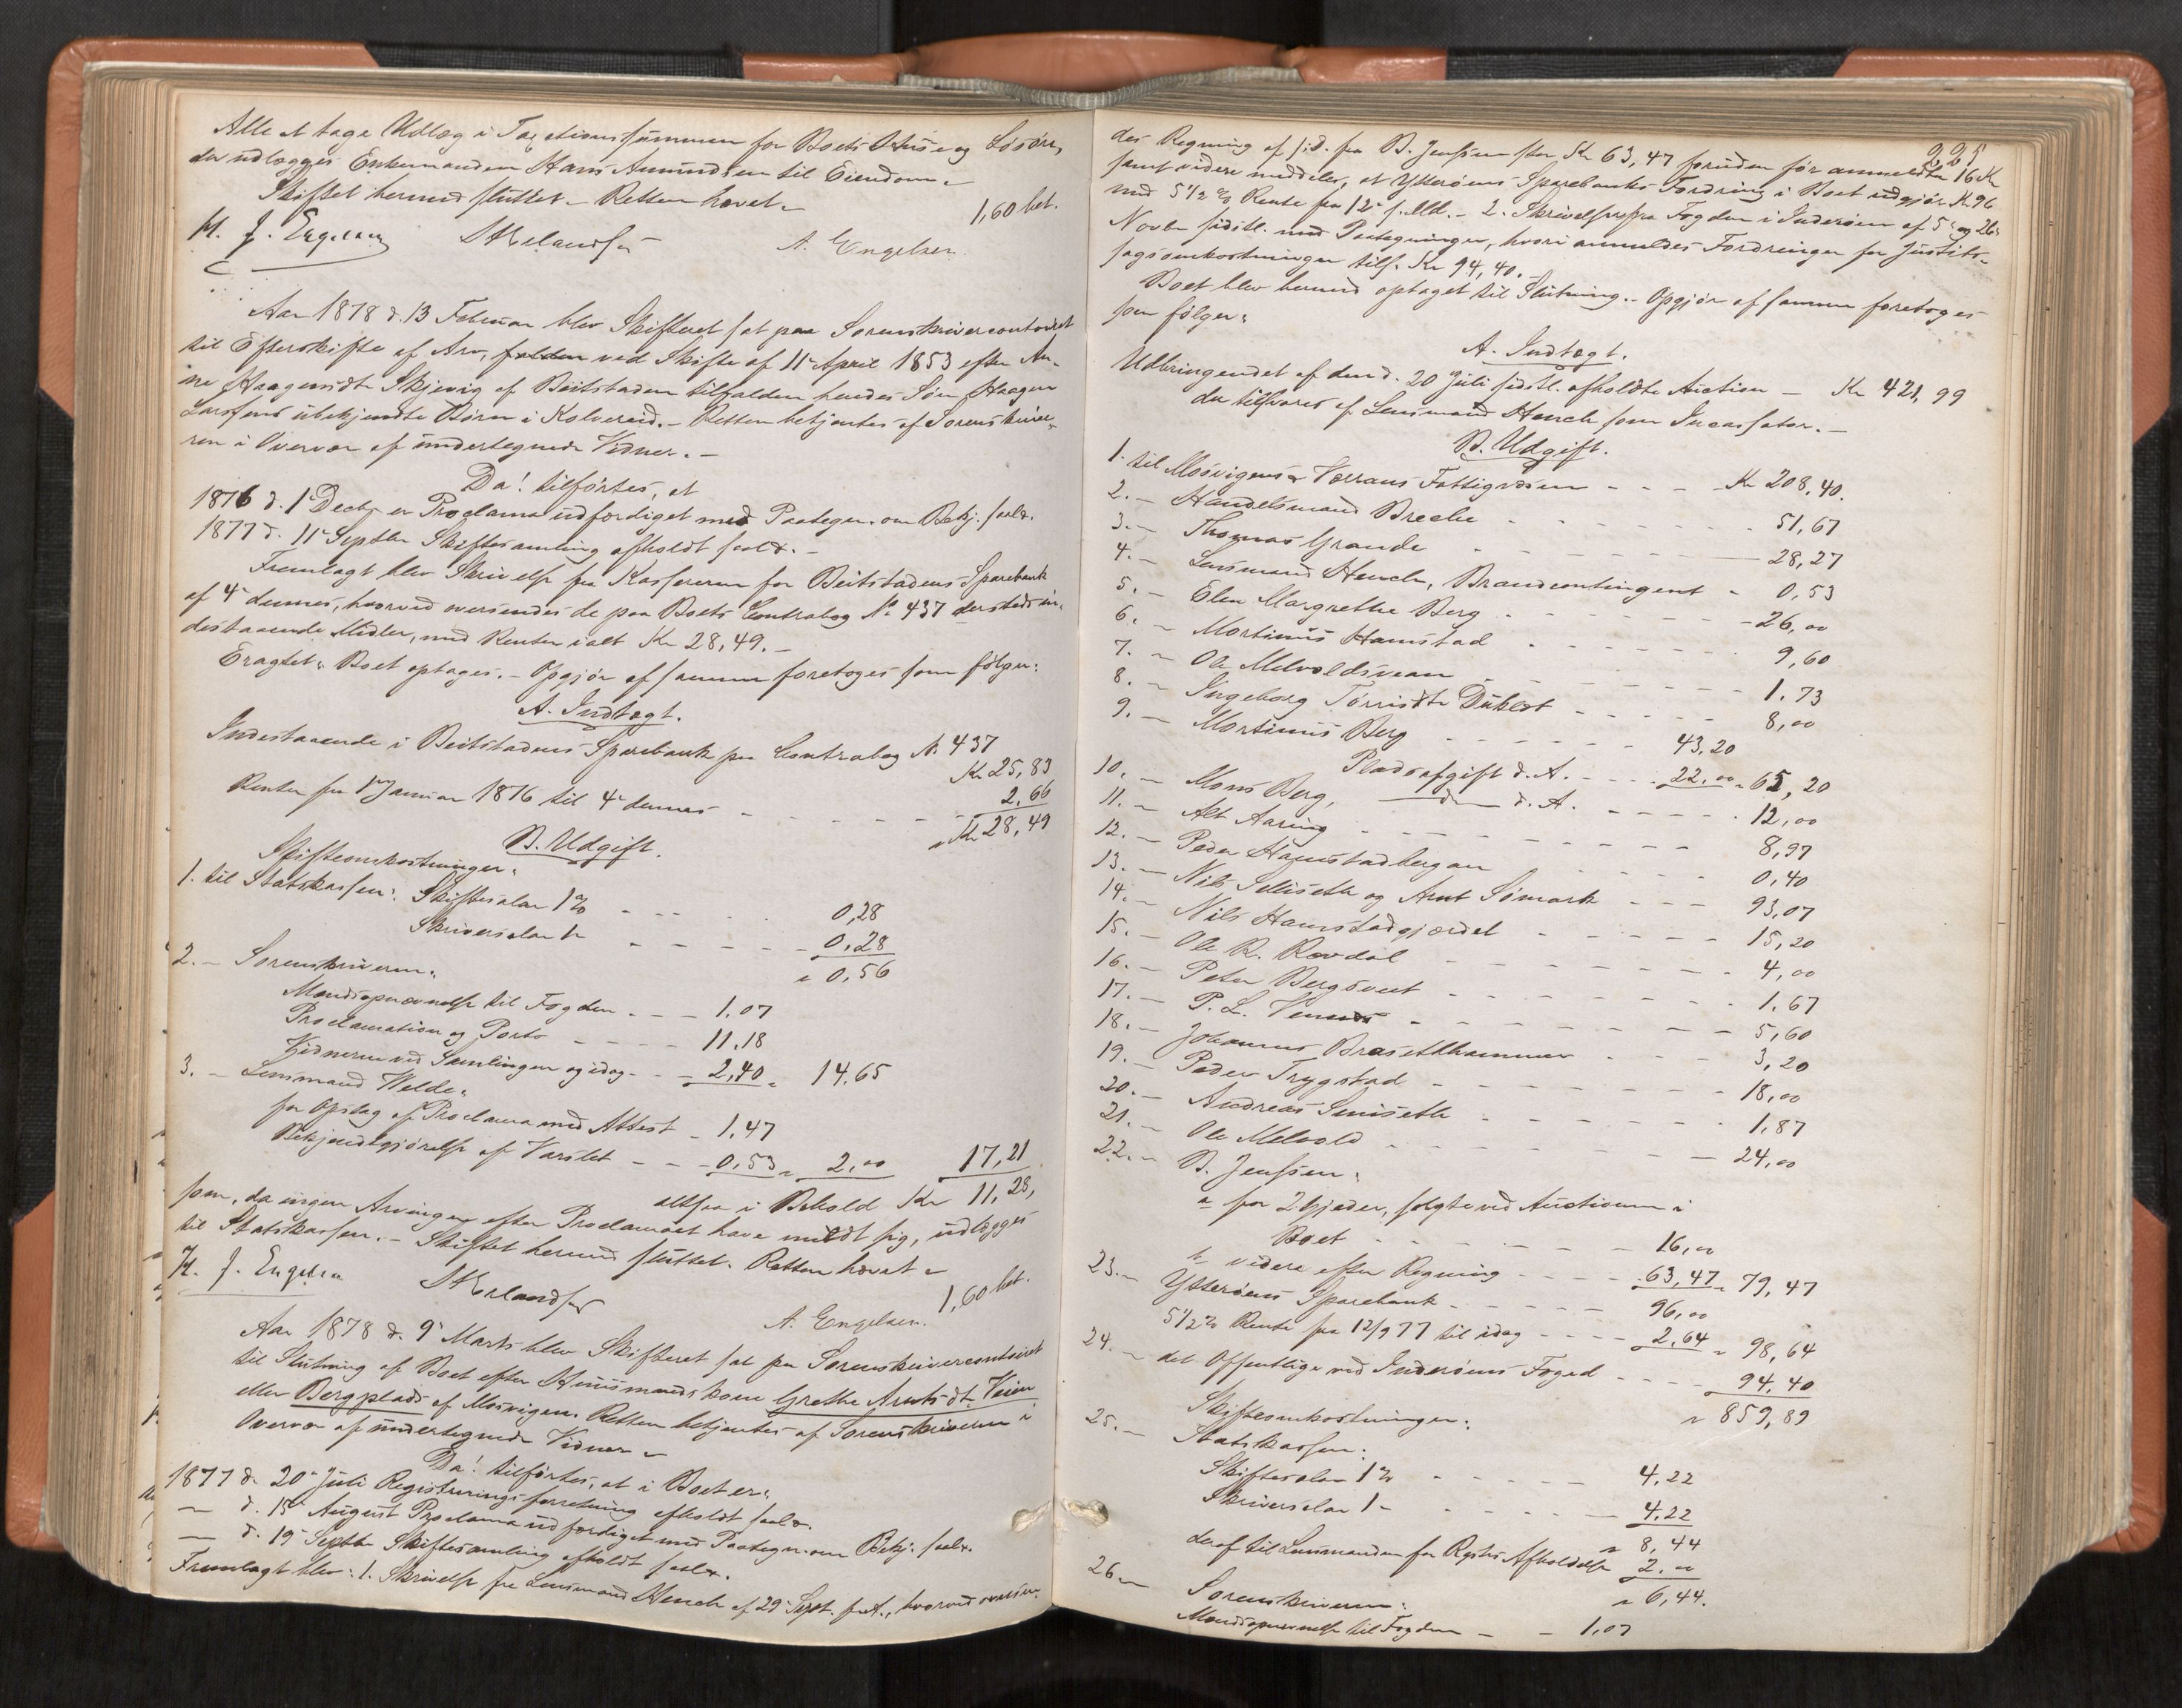 Alle at tage Udlæg i Taxationssummen for Boets Huse og Løsøre,
der udlægges Enkemanden Hans Amundsen til Eiendom.
Skiftet hermed sluttet. Retten hævet.
1,60 bet.
H. J. Engelsen
A. Engelsen.
Aar 1878 d. 13 Februar blev Skifteret sat paa Sorenskrivercontoiret
til Efterskifte af Arv, falden ved Skifte af 11te April 1853 efter An-
ne Haagensdtr Skjevig af Beitstaden tilfalden hendes Søn Haagen
Larsens ubekjendte Børn i Kolvereid. - Retten betjentes af Sorenskrive-
ren i Overvær af undertegnede Vidner. -
Da! tilførtes, at
1876 d. 1 Decbr er Proclama udfærdiget med Paategn. om Bekj. saalr.
1877 d. 11te Septbr Skiftesamling afholdt saalr. -
Fremlagt blev Skrivelse fra Kassereren for Beitstadens Sparebank
af 4de dennes, hvorved oversendes de paa Boets Contrabog No 437 dersteds in-
destaaende Midler, med Renter ialt Kr 28,49. -
Eragtet: Boet optages. - Opgjør af samme foretoges som følger:
A. Indtægt.
Indestaaende i Beitstadens Sparebank paa Contrabog N. 437
Kr 25,83
Renter fra 1ste Januar 1876 til 4de dennes - - - 2.66
Kr 28,49
B. Udgift.
Skifteomkostninger:
1. til Statskassen: Skiftesalær 1% - - - 0,28
Skriversalær 1 - - - 0.28
" 0.56
2. - Sorenskriveren:
Mandsopnævnelse til Fogden - - - 1.07
Proclamation og Porto - - - 11.18
Vidnerne ved Samlingen og idag - - 2,40 " 14.65
3. - Lensmand Welde:
for Opslag af Proclama med Attest - 1.47
Bekjendtgjørelse af Varslet - - 0,53 " 2,00 17,21
altsaa i Behold Kr 11,28,
som, da ingen Arvinger efter Proclamaet have meldt sig, udlægges
til Statskassen. - Skiftet hermed sluttet. Retten hævet.
1,60 bet.
H. J. Engelsen
A. Engelsen.
Aar 1878 d. 9 Marts blev Skifteret sat paa Sorenskrivercontoiret
til Slutning af Boet efter Huusmandskone Grethe Arntsdtr Veien
eller Bergplads af Mosvigen. Retten betjentes af Sorenskriveren i
Overvær af undertegnede Vidner.
Da! tilførtes, at i Boet er:
1877 d. 20de Juli Registreringsforretning afholdt saalr.
— d. 15 August Proclama udfærdiget med Paategn. om Bekj. saalr.
— d. 19 Septbr Skiftesamling afholdt saalr.
Fremlagt blev: 1. Skrivelse fra Lensmand Hench af 29 Sept. f. A., hvorved oversen-
225
des Regning af s. D. fra B. Jenssen stor Kr 63,47 foruden før anmeldte 16 Kr
samt videre meddeles, at Ytterøens Sparebanks Fordring i Boet udgjør Kr 96
med 5 1/2 % Rente fra 12te s. Md. - 2. Skrivelser fra Fogden i Inderøen af 5te og 26de
Novbr sidstl. med Paategninger, hvori anmeldes Fordringer for Justits-
sagsomkostninger tils. Kr 94,40. -
Boet blev hermed optaget til Slutning. - Opgjør af samme foretoges
som følger:
A. Indtægt.
Udbringendet af den d. 20 Juli sidstl. afholdte Auction - Kr 421,99
der tilsvares af Lensmand Hench som Incassator. -
B. Udgift.
1. til Mosvigens & Værrans Fattigvæsen - - - Kr 208,40.
2. - Handelsmand Breche - - - 51,67
3. - Thomas Grande - - - 28,27
4. - Lensmand Hench, Brandcontingent - 0,53
5. - Elen Margrethe Berg - - - 26,00
6. - Mortinus Hamstad - - - 9,60
7. - Ole Melvoldsvean - - - 1.73
8. - Ingeborg Tørrisdtr - - - 8,00
9. - Mortinus Berg - - - 43.20
Pladsafgift d. A. - - - 22.00 " 65,20
10. - Mons Berg, — d. A. - - - 12,00
11. - Alt Aaring - - - 8,97
12. - Peder Hamstadbergan - - - 0,40
13. - Nils Selliseth og Arnt Sømark - - - 93,07
14. - Nils Hamstadgjærdet - - - 15,20
15. - Ole R. Rovdal - - - 4,00
16. - Peter Bergsveet - - - 1.67
17. - P. L. Vennes - - - 5,60
18. - Johannes Brasethhammer - - - 3,20
19. - Peder Trygstad - - - 18,00
20. - Andreas Seniseth - - - 1.87
21. - Ole Melvold - - - 24,00
22. - B. Jenssen:
a for 2 Gjeder, solgte ved Auctionen i
Boet - - - 16,00
b videre efter Regning - - - 63,47 " 79,47
23. - Ytterøens Sparebank - - - 96,00
5 1/2 % Rente fra 12/9 77 til idag - - - 2,64 " 98,64
24. - det Offentlige ved Inderøens Foged - - - 94,40
" 859,89
Skifteomkostninger:
25. - Statskassen:
Skiftesalær 1% - - - 4,22
Skriversalær 1 - - - - 4,22
" 8,44
deraf til Lensmanden for Regists Afholdelse 2,00
" 6,44.
26. - Sorenskriveren:
Mandsopnævnelse til Fogden - - 1,07